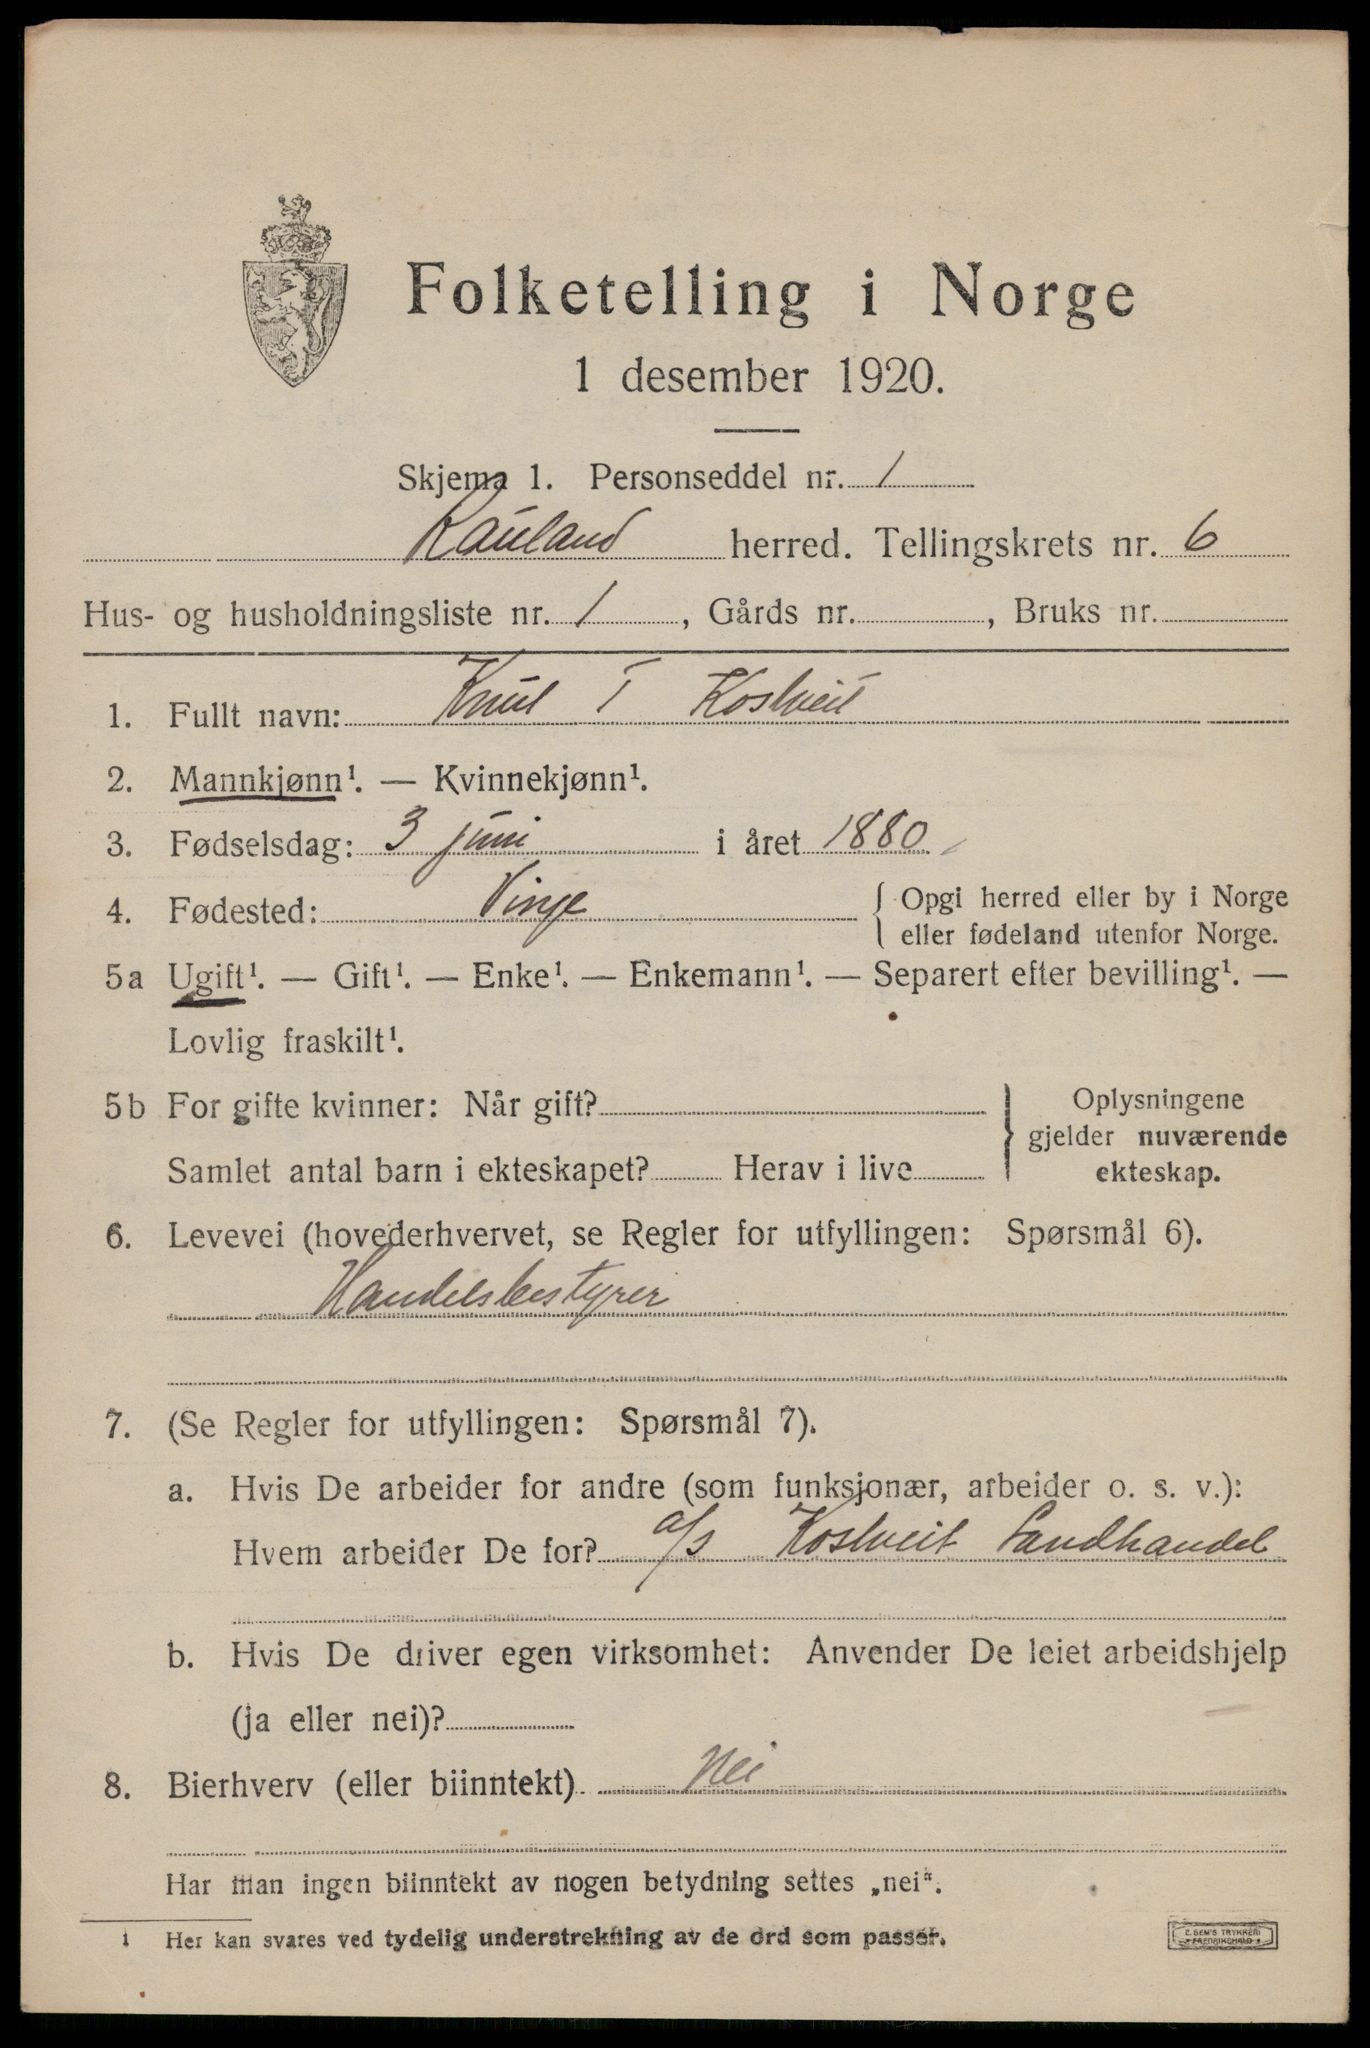 Folketelling i Norge
1 desember 1920.
Skjema 1. Personseddel nr. 1
Rauland herred. Tellingskrets nr. 6
Hus- og husholdningsliste nr. 1, Gårds nr. , Bruks nr.
1. Fullt navn: Knut T Kostveit
2. Mannkjønn¹. — Kvinnekjønn¹.
3. Fødselsdag: 3 juni i året 1880
4. Fødested: Vinje { Opgi herred eller by i Norge
eller fødeland utenfor Norge.
5a Ugift¹. — Gift¹. — Enke¹. — Enkemann¹. — Separert efter bevilling¹. —
Lovlig fraskilt¹.
5b For gifte kvinner: Når gift? } Oplysningene
gjelder nuværende
Samlet antal barn i ekteskapet? Herav i live ekteskap.
6. Levevei (hovederhvervet, se Regler for utfyllingen: Spørsmål 6).
Handelsbestyrer
7. (Se Regler for utfyllingen: Spørsmål 7).
a. Hvis De arbeider for andre (som funksjonær, arbeider o. s. v.):
Hvem arbeider De for? a/s Kostveit Landhandel
b. Hvis De driver egen virksomhet: Anvender De leiet arbeidshjelp
(ja eller nei)?
8. Bierhverv (eller biinntekt) Nei
Har man ingen biinntekt av nogen betydning settes „nei".
1 Her kan svares ved tydelig understrekning av de ord som passer.
E. SEM'S TRYKKERI
FREDRIKSHALD